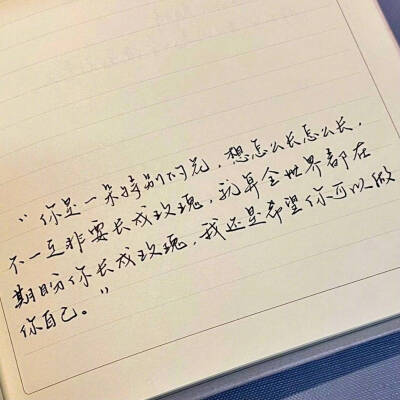 “你是一朵特别的花，想怎么长怎么长，
不一定非要长成玫瑰，就算全世界都在
期盼你长成玫瑰，我还是希望你可以做
你自己。”